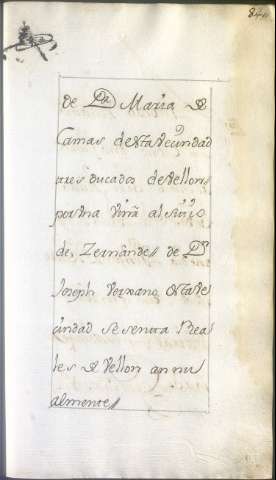 84
de Da Maria de
Camas desta Vecindad
tres ducados de vellon
por una Viña al sitio
de, Zernade// de Dn
Joseph Verxano desta Ve
cindad Sesenta Rea
les de Vellon annu
almente//